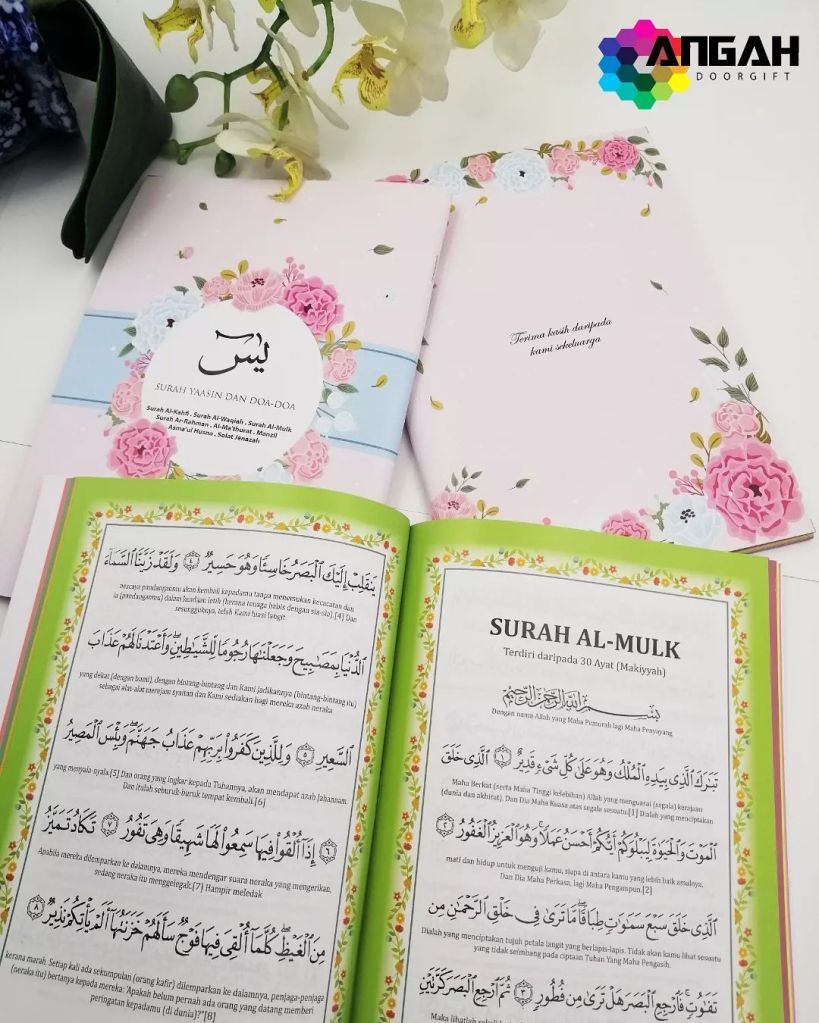 ANGAH
DOORGIFT
يس
SURAH YAASIN DAN DOA-DOA
Surah Al-Kahfi . Surah Al-Waqiah . Surah Al-Mulk
Surah Ar-Rahman . Al-Ma'thurat . Manzil
Asma'ul Husna . Solat Jenazah
Terima kasih daripada
kami sekeluarga
SURAH AL-MULK
Terdiri daripada 30 Ayat (Makiyyah)
بِسْمِ اللَّهِ الرَّحْمَٰنِ الرَّحِيمِ
Dengan nama Allah yang Maha Pemurah lagi Maha Penyayang
تَبَٰرَكَ ٱلَّذِى بِيَدِهِ ٱلْمُلْكُ وَهُوَ عَلَىٰ كُلِّ شَىْءٍ قَدِيرٌ ۝١ ٱلَّذِى خَلَقَ
Maha Berkat (serta Maha Tinggi kelebihan) Allah yang menguasai (segala) kerajaan
(dunia dan akhirat). Dan Dia Maha Kuasa atas segala sesuatu.[1] Dialah yang menciptakan
ٱلْمَوْتَ وَٱلْحَيَوٰةَ لِيَبْلُوَكُمْ أَيُّكُمْ أَحْسَنُ عَمَلًا ۚ وَهُوَ ٱلْعَزِيزُ ٱلْغَفُورُ ۝٢
mati dan hidup untuk menguji kamu, siapa di antara kamu yang lebih baik amalnya.
Dan Dia Maha Perkasa, lagi Maha Pengampun.[2]
ٱلَّذِى خَلَقَ سَبْعَ سَمَٰوَٰتٍ طِبَاقًا ۖ مَّا تَرَىٰ فِى خَلْقِ ٱلرَّحْمَٰنِ مِن
Dialah yang menciptakan tujuh petala langit yang berlapis-lapis. Tidak akan kamu lihat sesuatu
yang tidak seimbang pada ciptaan Tuhan Yang Maha Pengasih.
تَفَٰوُتٍ ۖ فَٱرْجِعِ ٱلْبَصَرَ هَلْ تَرَىٰ مِن فُطُورٍ ۝٣ ثُمَّ ٱرْجِعِ ٱلْبَصَرَ كَرَّتَيْنِ
يَنقَلِبْ إِلَيْكَ ٱلْبَصَرُ خَاسِئًا وَهُوَ حَسِيرٌ ۝٤ وَلَقَدْ زَيَّنَّا ٱلسَّمَآءَ
nescaya pandanganmu akan kembali kepadamu tanpa menemukan kecacatan dan
ia (pandanganmu) dalam keadaan letih (kerana tenaga habis dengan sia-sia).[4] Dan
sesungguhnya, telah Kami hiasi langit
ٱلدُّنْيَا بِمَصَٰبِيحَ وَجَعَلْنَٰهَا رُجُومًا لِّلشَّيَٰطِينِ ۖ وَأَعْتَدْنَا لَهُمْ عَذَابَ
yang dekat (dengan bumi), dengan bintang-bintang dan Kami jadikannya (bintang-bintang itu)
sebagai alat-alat merejam syaitan dan Kami sediakan bagi mereka azab neraka
ٱلسَّعِيرِ ۝٥ وَلِلَّذِينَ كَفَرُوا۟ بِرَبِّهِمْ عَذَابُ جَهَنَّمَ ۖ وَبِئْسَ ٱلْمَصِيرُ
yang menyala-nyala.[5] Dan orang yang ingkar kepada Tuhannya, akan mendapat azab Jahannam.
Dan itulah seburuk-buruk tempat kembali.[6]
۝٦ إِذَآ أُلْقُوا۟ فِيهَا سَمِعُوا۟ لَهَا شَهِيقًا وَهِىَ تَفُورُ ۝٧ تَكَادُ تَمَيَّزُ
Apabila mereka dilemparkan ke dalamnya, mereka mendengar suara neraka yang mengerikan,
sedang neraka itu menggelegak.[7] Hampir meledak
مِنَ ٱلْغَيْظِ ۖ كُلَّمَآ أُلْقِىَ فِيهَا فَوْجٌ سَأَلَهُمْ خَزَنَتُهَآ أَلَمْ يَأْتِكُمْ نَذِيرٌ ۝٨
kerana marah. Setiap kali ada sekumpulan (orang kafir) dilemparkan ke dalamnya, penjaga-penjaga
(neraka itu) bertanya kepada mereka: "Apakah belum pernah ada orang yang datang memberi
peringatan kepadamu (di dunia)?"[8]